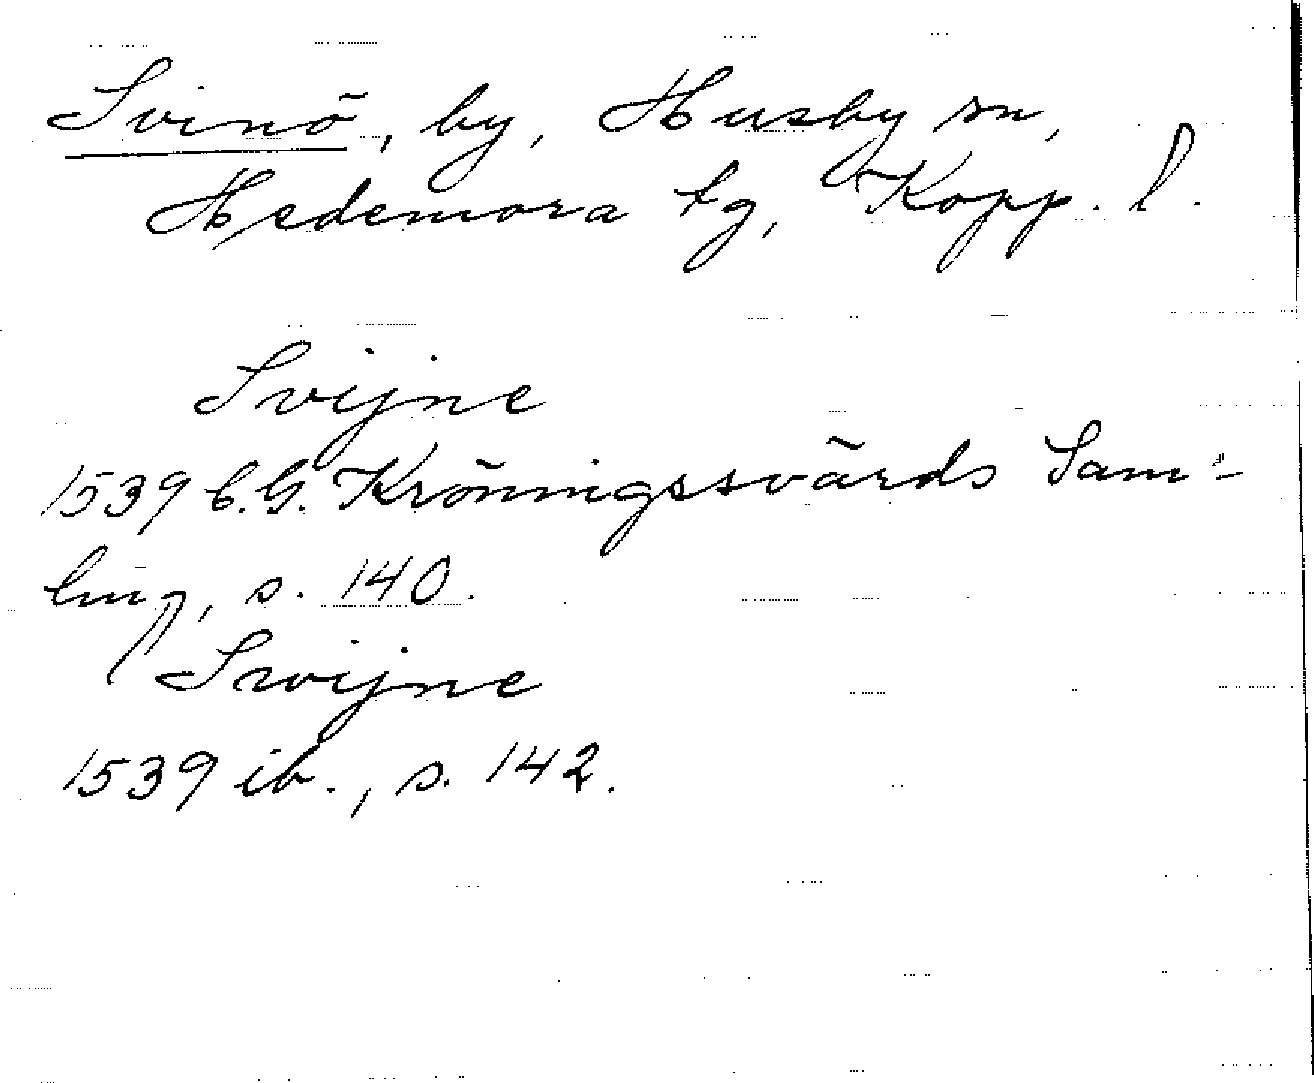 Svinö, by, Husby sn,
Hedemora tg, Kopp. l.
Svijne
1539 C.G. Kröningssvärds Sam-
ling, s. 140.
Swijne
1539 ib., s. 142.